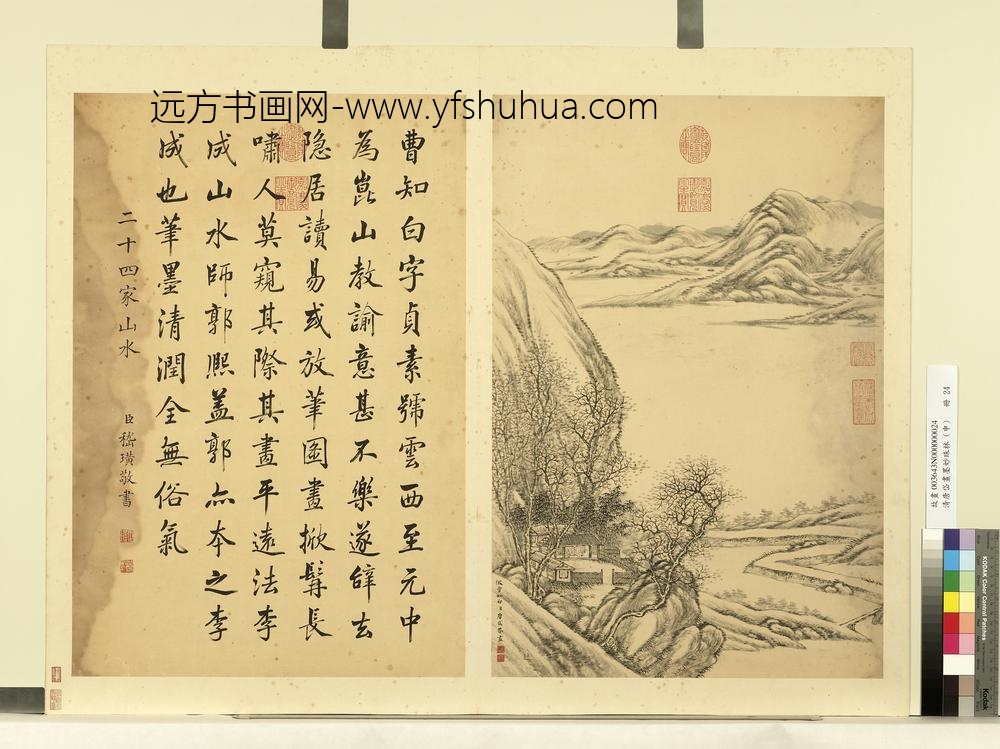 远方书画网-www.yfshuhua.com
曹知白字貞素號雲西至元中
為崑山教諭意甚不樂遂辭去
隐居讀易或放筆圖畫掀髯長
嘯人莫窺其際其畫平遠法李
成山水師郭熙盖郭亦本之李
成也筆墨清潤全無俗氣
二十四家山水
臣嵇璜敬書
故畫003643N000000024
清唐岱畫墨妙珠林（申） 冊 24
KODAK Color Control Patches
Kodak